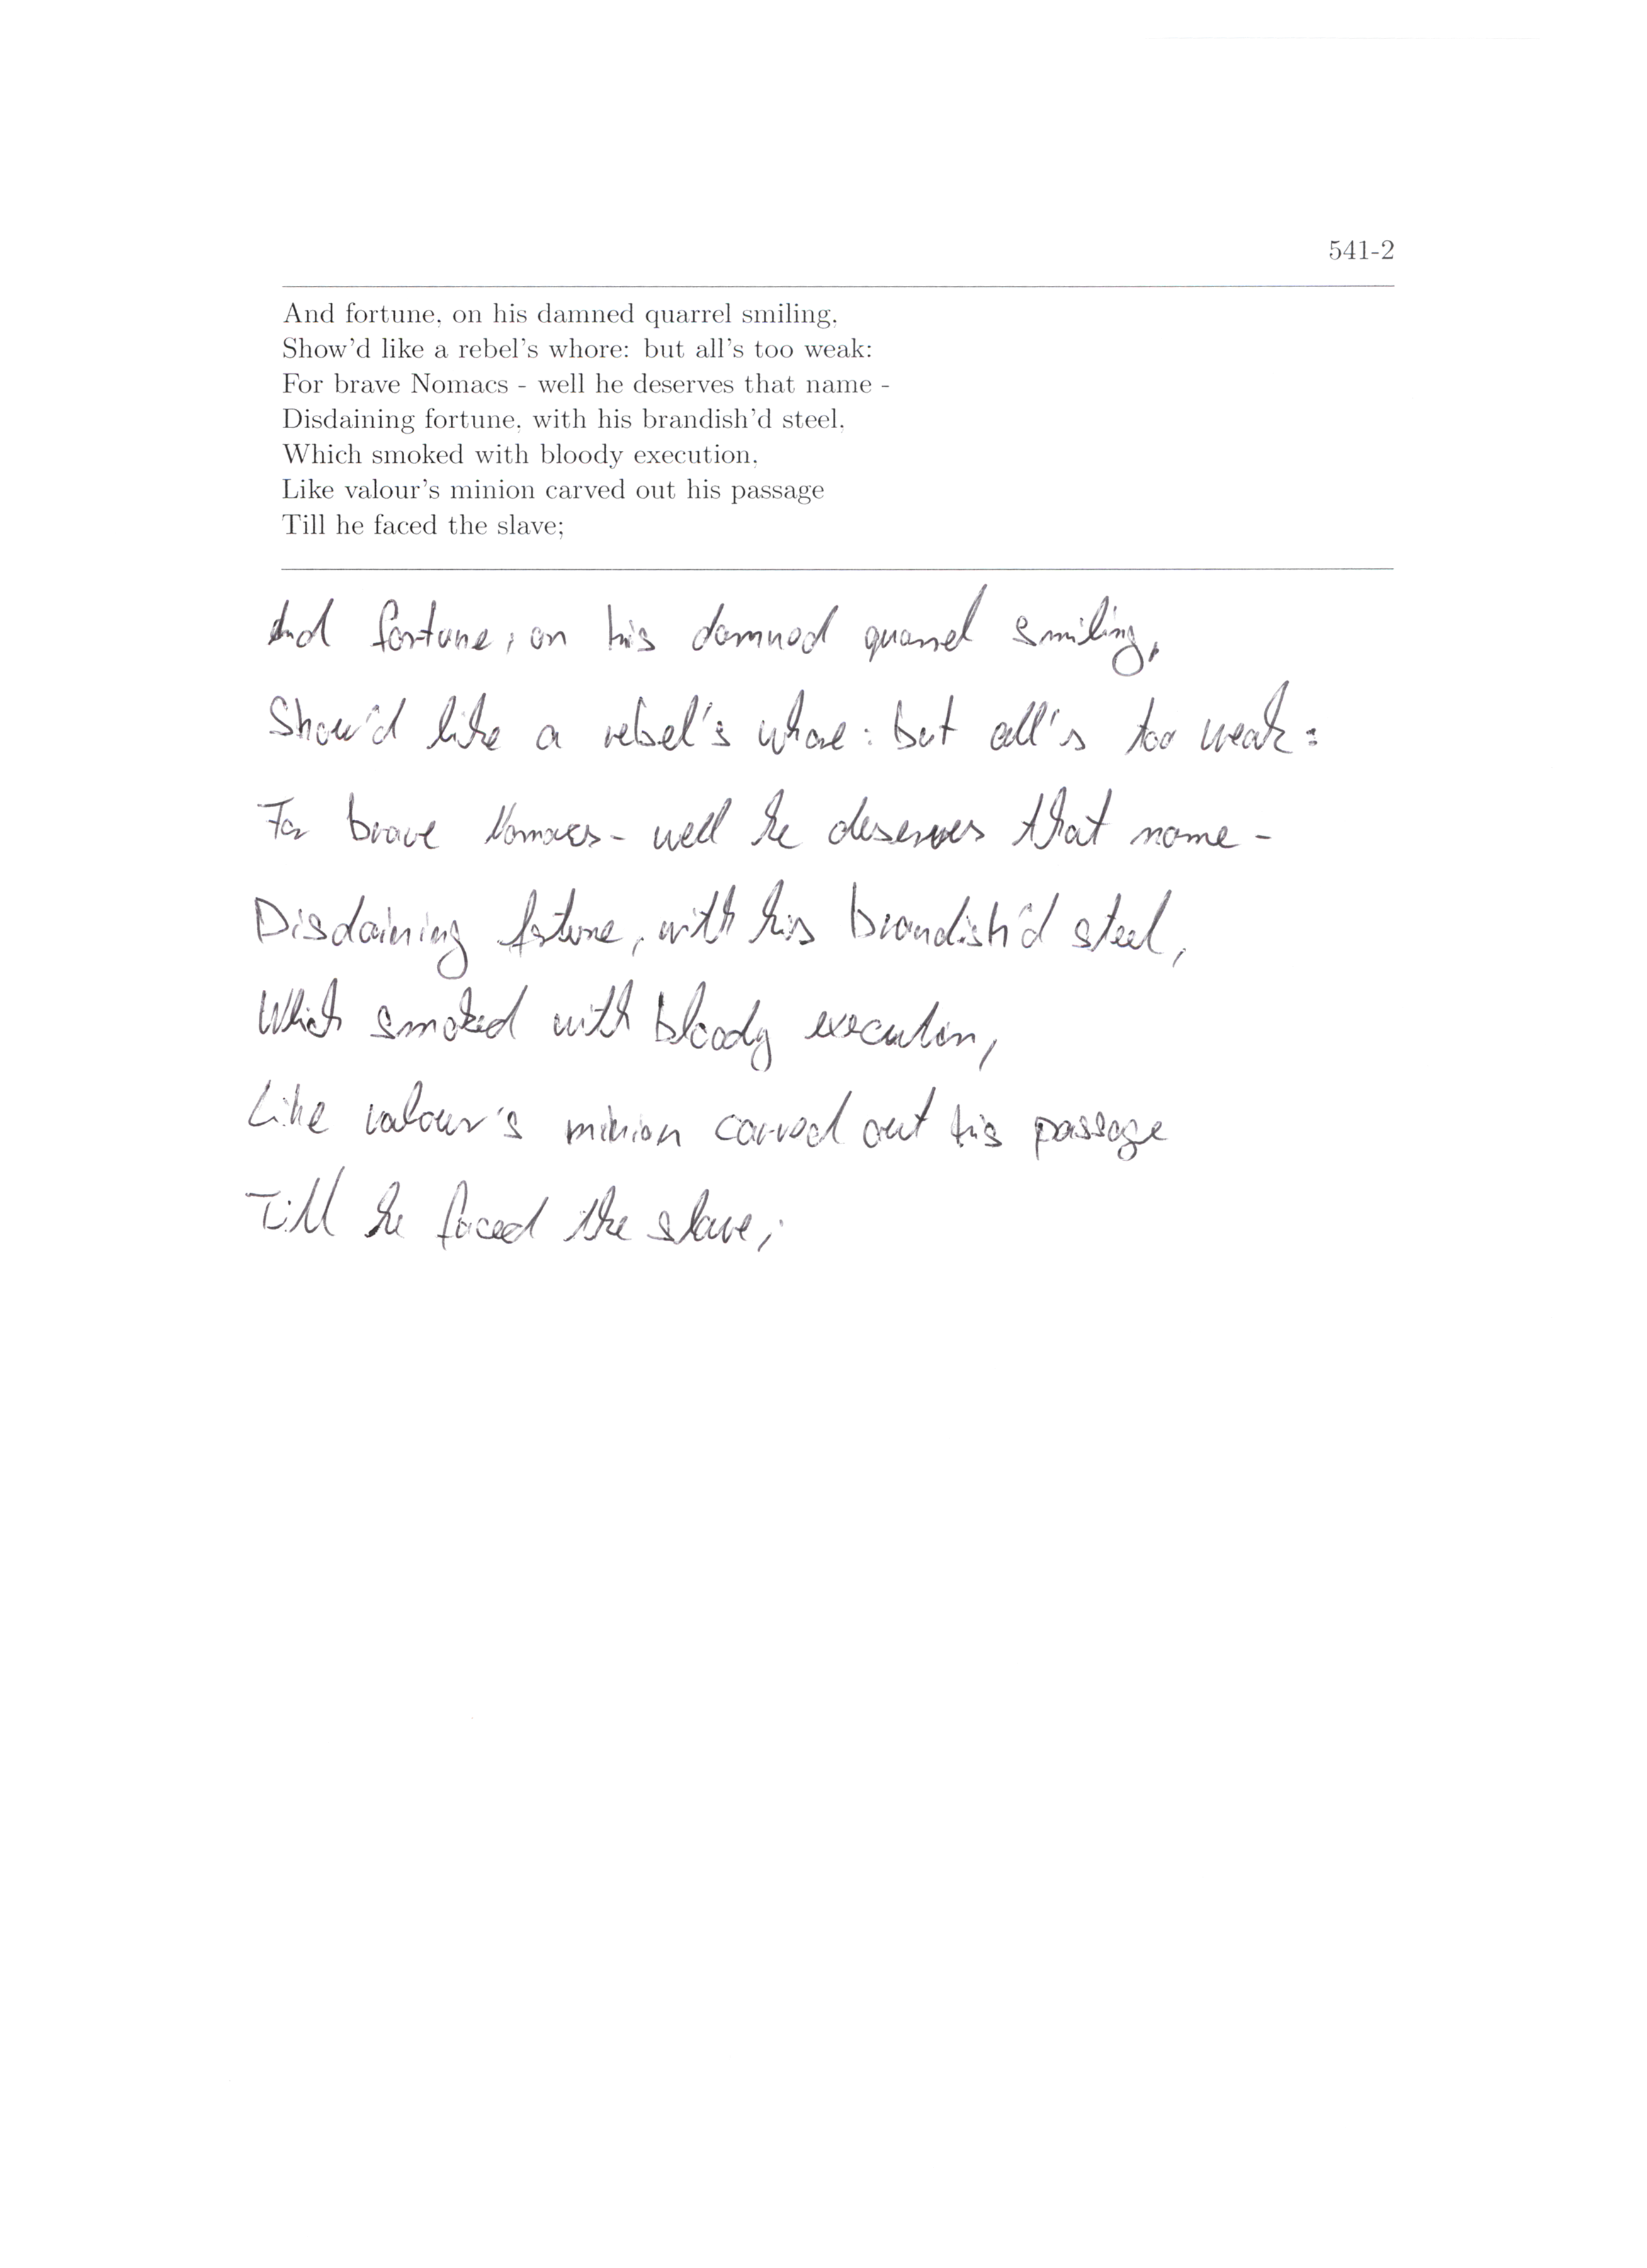 541-2
And fortune, on his damned quarrel smiling,
Show'd like a rebel's whore: but all's too weak:
For brave Nomacs - well he deserves that name -
Disdaining fortune, with his brandish'd steel,
Which smoked with bloody execution,
Like valour's minion carved out his passage
Till he faced the slave;
And fortune, on his damned quarrel smiling,
Show'd like a rebel's whore: but all's too weak:
For brave Nomacs - well he deserves that name -
Disdaining fortune, with his brandish'd steel,
Which smoked with bloody execution,
Like valour's minion carved out his passage
Till he faced the slave;